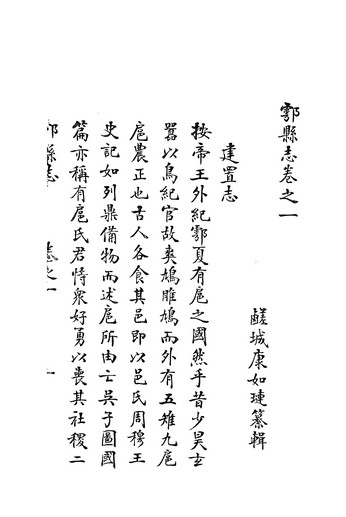 鄠縣志卷之一
鹺城康如璉纂輯
建置志
按帝王外紀鄠夏有扈之國然乎昔少昊玄
囂以鳥紀官故爽鳩雎鳩而外有五雉九扈
扈農正也古人各食其邑即以邑氏周穆王
史記如列鼎備物而述扈所由亡吳子圖國
篇亦稱有扈氏君恃衆好勇以喪其社稷二
鄠縣志
志之一
一